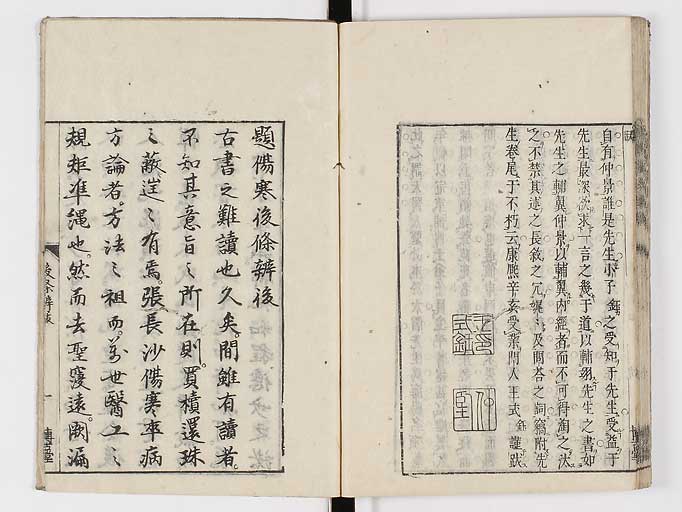 自有仲景誰是先生小子鈺之受知于先生受益于
先生最深欲求一言之幾于道以輔翊先生之書如
先生之輔翼仲景以輔翼內經者而不可得淘之汰
之不禁其述之長敘之冗襍及問答之詞竊附先
生卷尾于不朽云康熙辛亥受業門人王式鈺謹跋
王式鈺印
題傷寒後條辨後
古書之難讀也久矣間雖有讀者
不知其意旨之所在則買櫝還珠
之敝逞之有焉張長沙傷寒卒病
方論者方法之祖而萬世醫工之
規矩準繩也然而去聖寖遠剛漏
後條辨跋
一